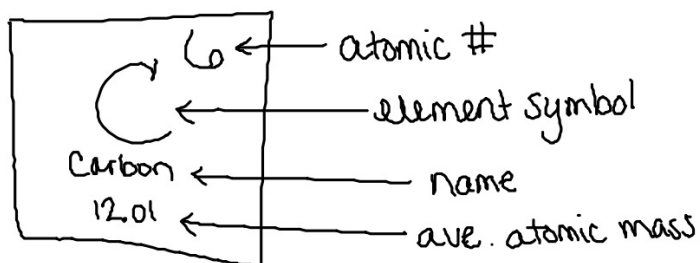 6 atomic #
C element symbol
Carbon name
12.01 ave. atomic mass